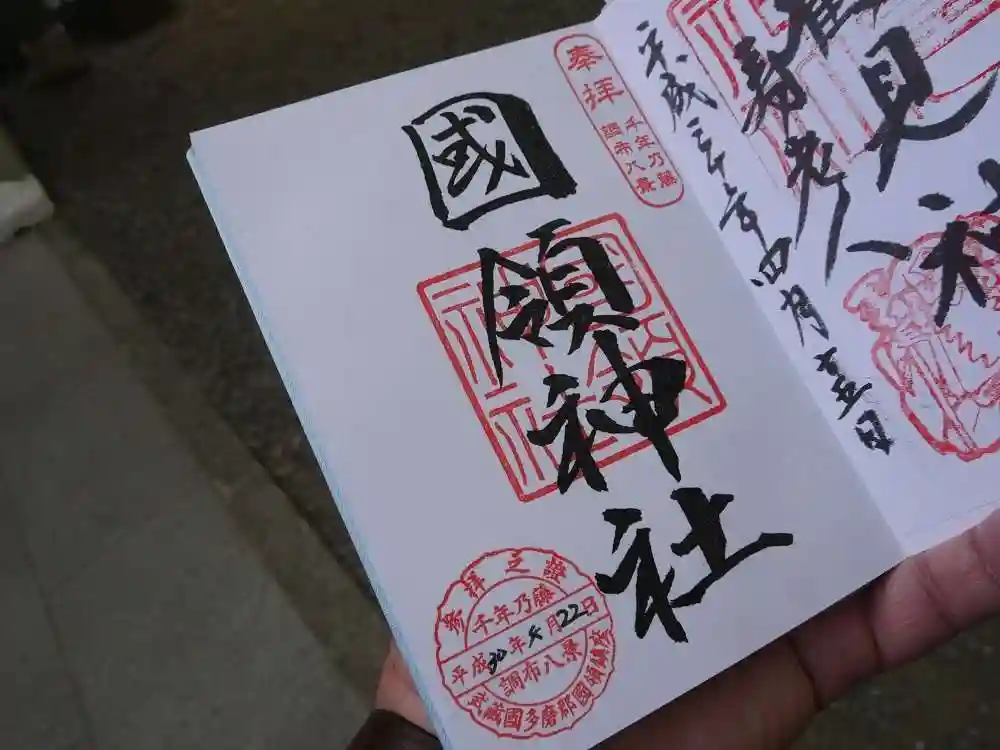 奉拝
千年乃藤
調布八景
國領神社
國領神社
參拝之證
千年乃藤
平成30年4月22日
調布八景
武蔵國多磨郡國領鎮座
見社
寿老人
平成三十年四月十五日